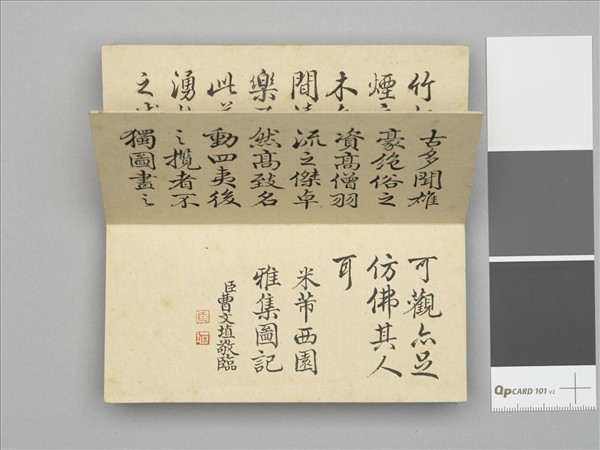 竹
煙
木
間清
樂不
此
湧
之
古多聞雄
豪絶俗之
資高僧羽
流之傑卓
然高致名
動四夷後
之攬者不
獨圖畫之
可觀亦足
仿佛其人
耳
米芾西園
雅集圖記
臣曹文埴敬臨
QpCARD 101 v2